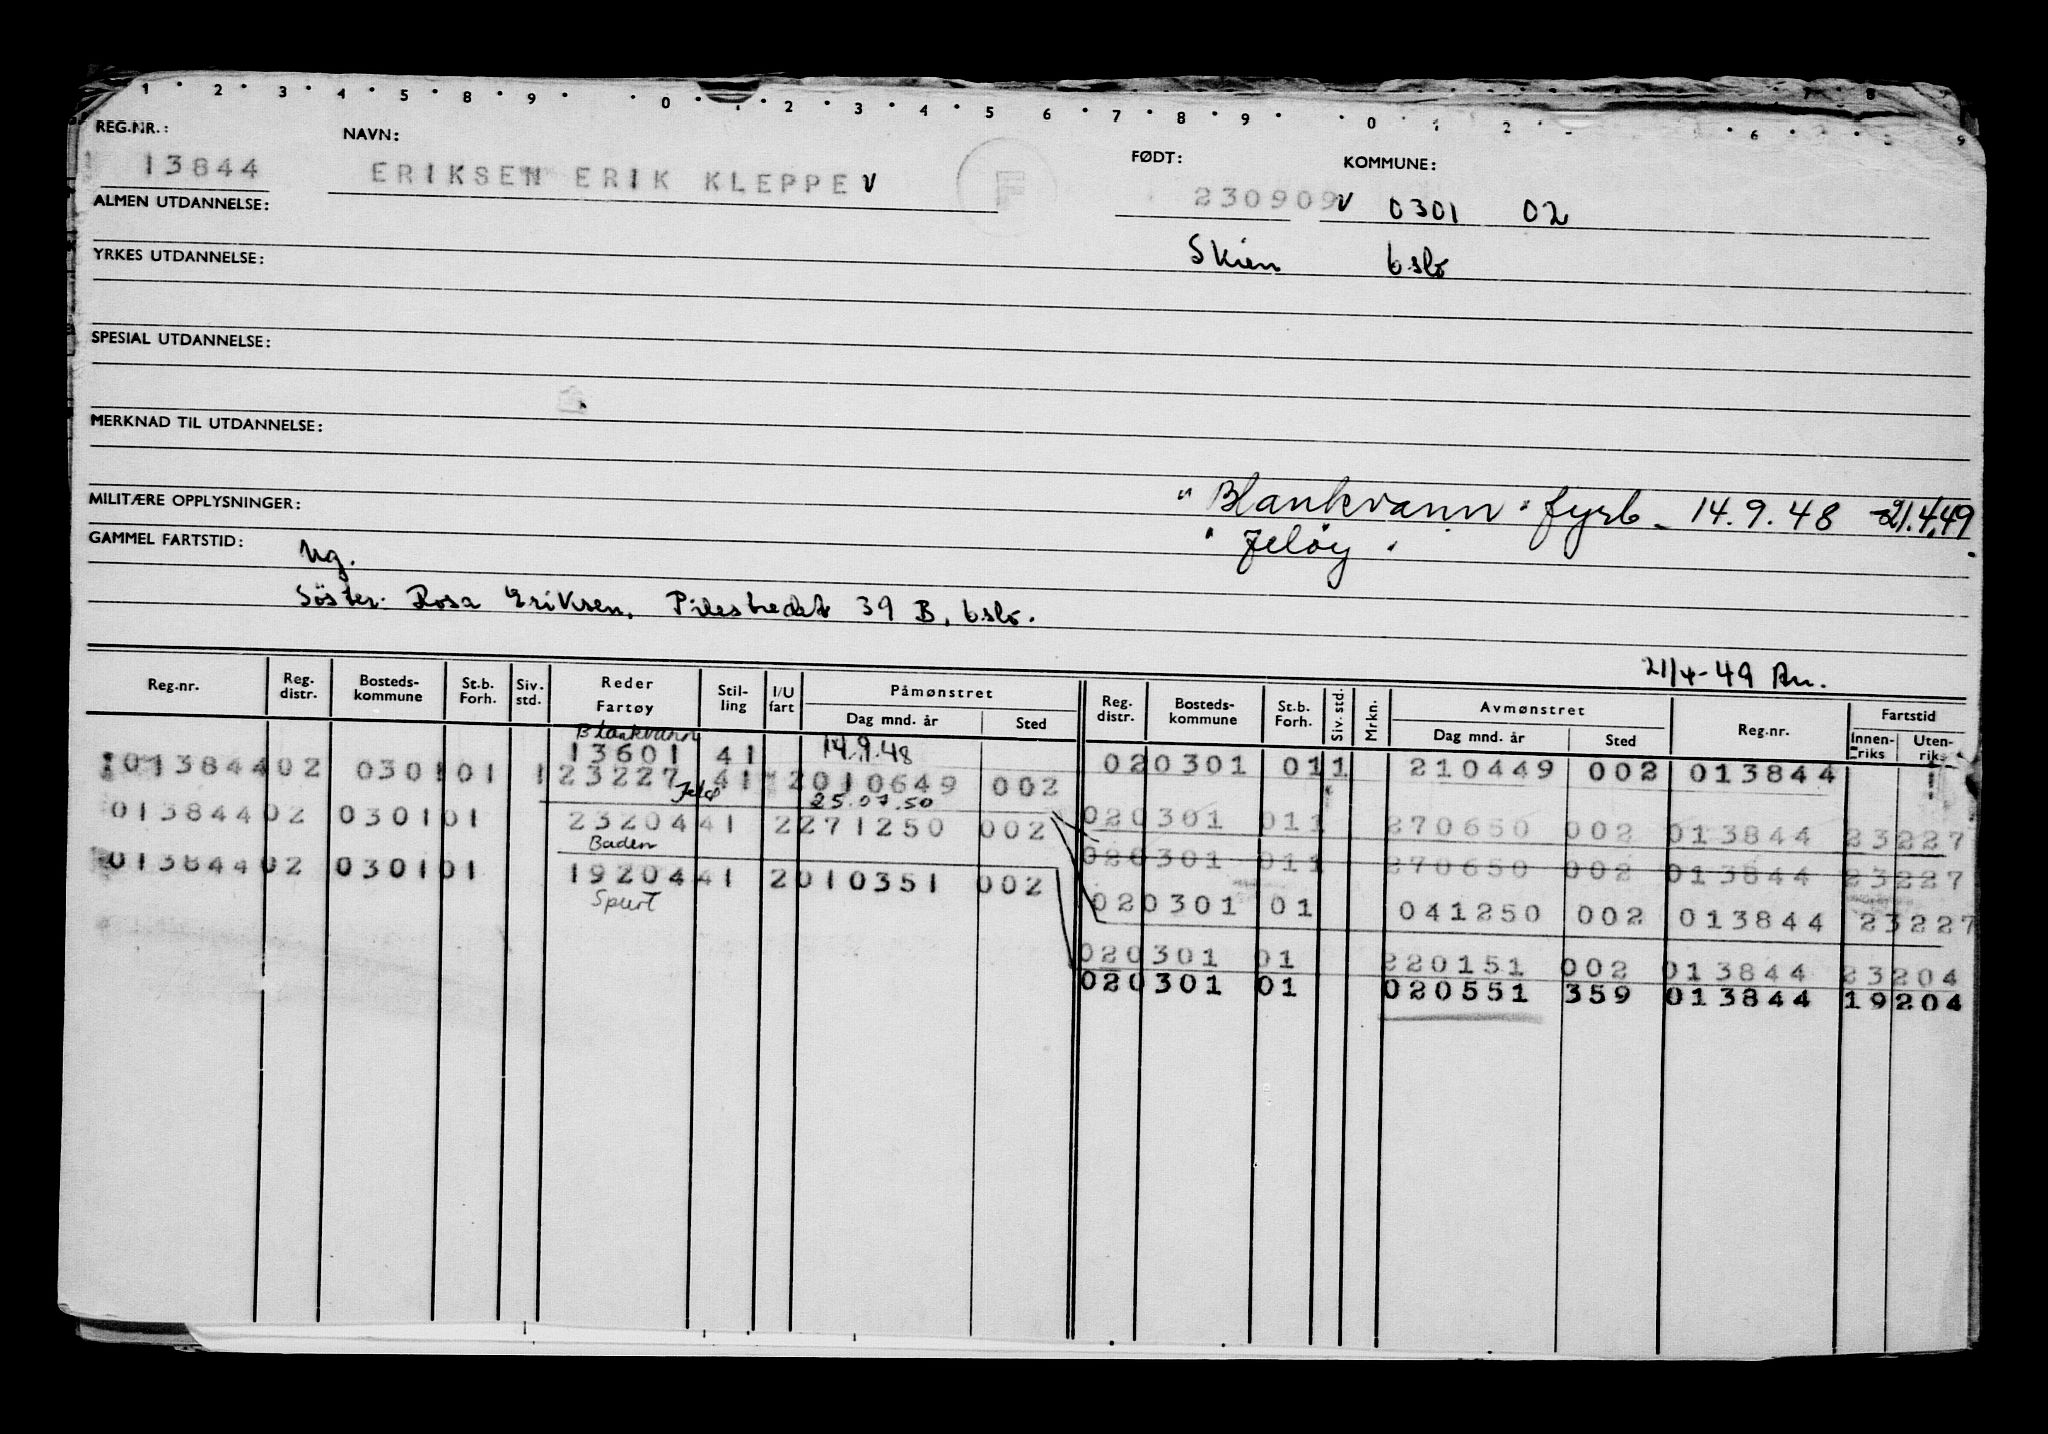 1 · 2 · 3 · 4 · 5 · 8 · 9 · · 0 · 1 · 2 · 3 · 4 · 5 · 6 · 7 · 8 · 9 · · 0 · 1 2 · 6 · · 9
REG.NR.: NAVN: FØDT: KOMMUNE:
13844 ERIKSEN ERIK KLEPPE V F 230909 V 0301 02
ALMEN UTDANNELSE:
Skien Oslo
YRKES UTDANNELSE:
SPESIAL UTDANNELSE:
MERKNAD TIL UTDANNELSE:
MILITÆRE OPPLYSNINGER: "Blankvann" fyrb - 14.9.48 - 21.4.49.
GAMMEL FARTSTID: Ug. "Jeløy"
Söster: Rosa Eriksen, Pilestredet 39 B, Oslo.
21/4-49 An.
Reg.nr. Reg. distr. Bosteds-kommune St.b. Forh. Siv. std. Reder Fartøy Stil-ling I/U fart Påmønstret Dag mnd. år Sted Reg. distr. Bosteds-kommune St.b. Forh. Siv. std. Mrkn. Avmønstret Dag mnd. år Sted Reg.nr. Fartstid Innen-riks Uten-riks
Blankvann
13601 41 14.9.48 02 0301 01 1 210449 002 013844
013844 02 0301 01 1 23227 41 2 010649 002
Jelø 25.07.50
013844 02 0301 01 23204 41 2 271250 002 02 0301 01 1 270650 002 013844 23227
Baden
02 0301 01 1 270650 002 013844 23227
013844 02 0301 01 19204 41 2 010351 002
Spurt
02 0301 01 041250 002 013844 23227
02 0301 01 220151 002 013844 23204
02 0301 01 020551 359 013844 19204